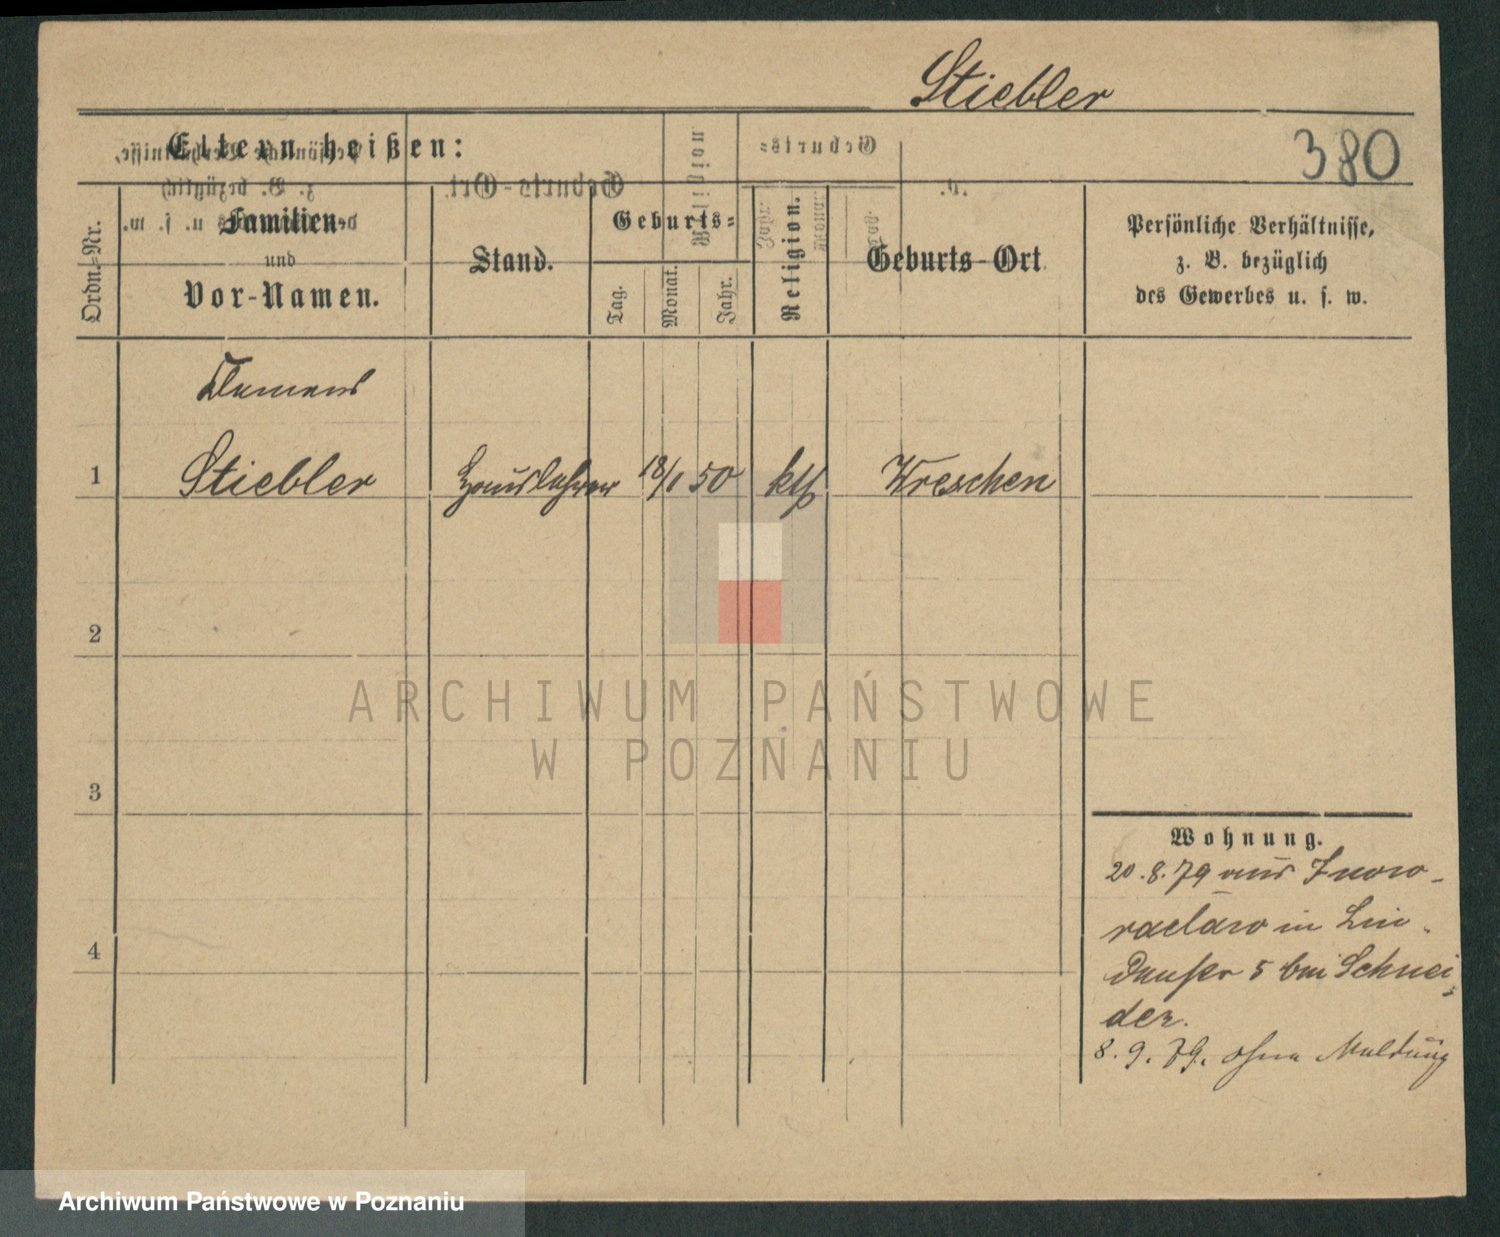 Stiebler
Eltern heißen:
380
Ordn.-Nr.
Familien-
und
Vor-Namen.
Stand.
Geburts-
Tag.
Monat.
Jahr.
Religion.
Geburts-Ort
Persönliche Verhältnisse,
z. B. bezüglich
des Gewerbes u. s. w.
Clemens
1 Stiebler Hauslehrer 18/1 50 kth Wreschen
2
3
4
Wohnung.
20.8.79 aus Inow-
raclaw in Lin-
denstr 5 bei Schnei-
der.
8.9.79. ohne Meldung
ARCHIWUM PAŃSTWOWE
W POZNANIU
Archiwum Państwowe w Poznaniu